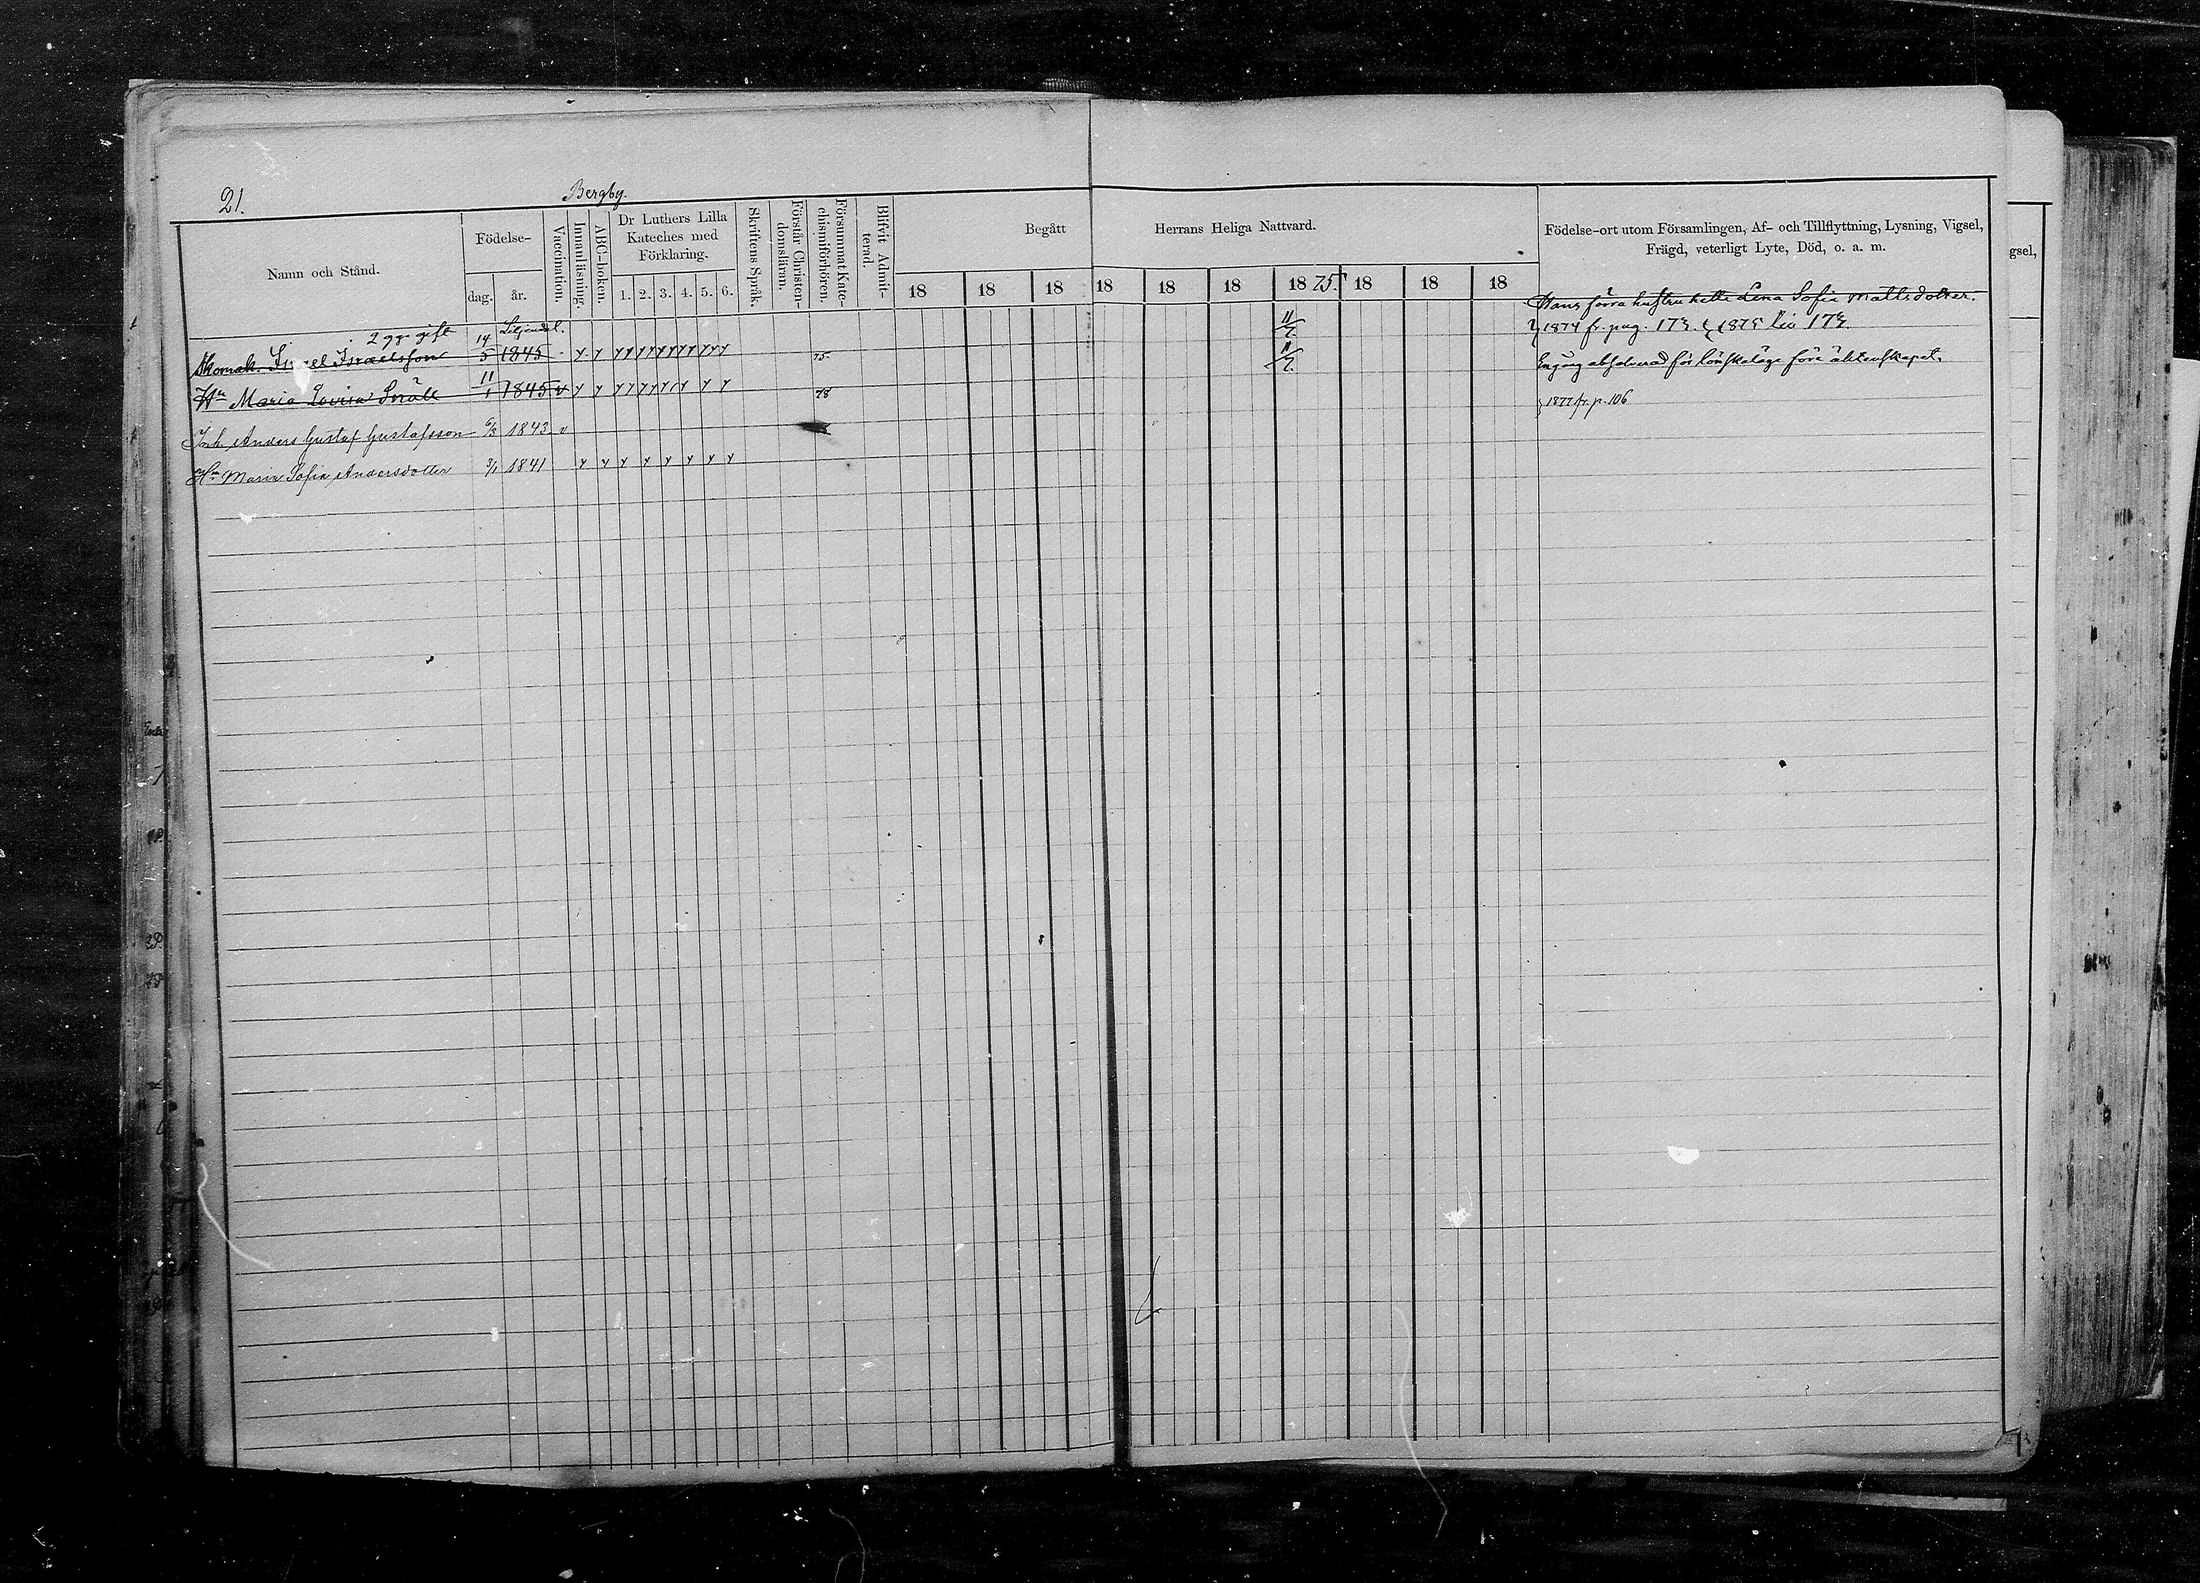 21.
Bergby.
Namn och Stånd.
Födelse-
dag. år.
Vaccination.
Innanläsning.
ABC-boken.
Dr Luthers Lilla
Kateches med
Förklaring.
1. 2. 3. 4. 5. 6.
Skriftens Språk.
Förstår Christen-
domsläran.
Försummat Kate-
chismiförhören.
Blifvit Admit-
terad.
Begått Herrans Heliga Nattvard.
18 18 18 18 18 18 1875 18 18 18
Födelse-ort utom Församlingen, Af- och Tillflyttning, Lysning, Vigsel,
Frägd, veterligt Lyte, Död, o. a. m.
gsel,
Hans förra hustru hette Lena Sofia Mattsdotter.
2 gg. gift 14 Liljendal. 11
Skomak. Israel Israelsson 5 1845 75 7 1874 fr. pag.
Hu Maria Lovisa 11 1 1845 v 78 11 7 Engång absolverad för lönskaläge före äktenskapet.
Anders Gustaf Gustafsson 6/3 1843 v 1877 fr. p. 106
Hu Maria Sofia Andersdotter 3/1 1841